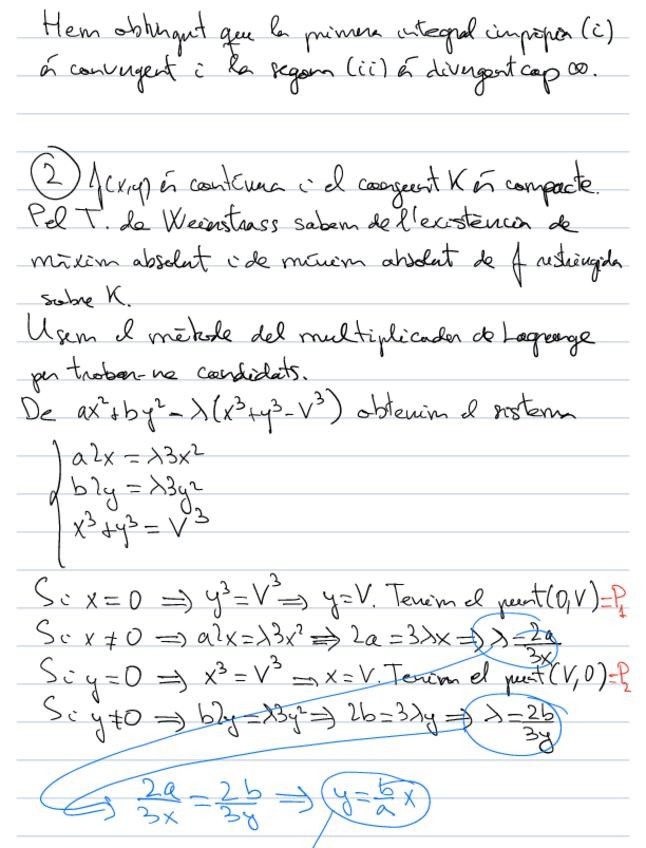 Hem obtingut que la primera integral impròpia (i)
és convergent i la segona (ii) és divergent cap ∞.
② f(x,y) és contínua i el conjunt K és compacte.
Pel T. de Weierstrass sabem de l'existència de
màxim absolut i de mínim absolut de f restringida
sobre K.
Usem el mètode del multiplicador de Lagrange
per trobar-ne candidats.
De ax²+by²-λ(x³+y³-V³) obtenim el sistema
a2x = λ3x²
b2y = λ3y²
x³+y³ = V³
Si x=0 ⟹ y³=V³ ⟹ y=V. Tenim el punt (0,V)=P₁
Si x≠0 ⟹ a2x=λ3x² ⟹ 2a=3λx ⟹ λ=2a/3x
Si y=0 ⟹ x³=V³ ⟹ x=V. Tenim el punt (V,0)=P₂
Si y≠0 ⟹ b2y=λ3y² ⟹ 2b=3λy ⟹ λ=2b/3y
2a/3x = 2b/3y ⟹ y=b/a x